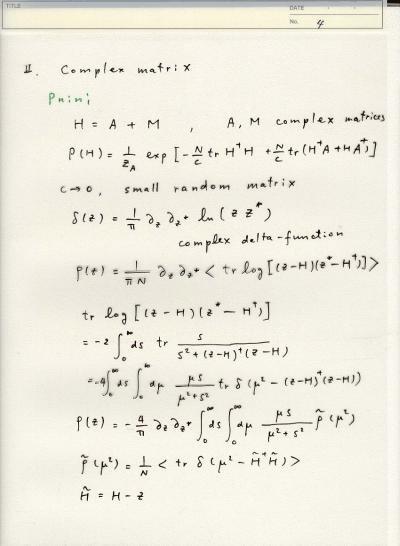 TITLE
DATE
No. 4
II. Complex matrix
H = A + M , A, M complex matrices
P(H) = 1/Z_A exp [ - N/c tr H†H + N/c tr (H†A + HA†) ]
c→0, small random matrix
δ(z) = 1/π ∂_z ∂_z* ln ( z z* )
complex delta-function
ρ(z) = 1/πN ∂_z ∂_z* < tr log [(z-H)(z*-H†)] >
tr log [ (z - H)(z* - H†) ]
= -2 ∫_0^∞ ds tr s / (s² + (z-H)†(z-H))
= -4 ∫_0^∞ ds ∫_0^∞ dμ μs / (μ² + s²) tr δ (μ² - (z-H)†(z-H))
ρ(z) = - 4/π ∂_z ∂_z* ∫_0^∞ ds ∫_0^∞ dμ μs / (μ² + s²) ρ̃ (μ²)
ρ̃ (μ²) = 1/N < tr δ (μ² - H̃†H̃) >
H̃ = H - z